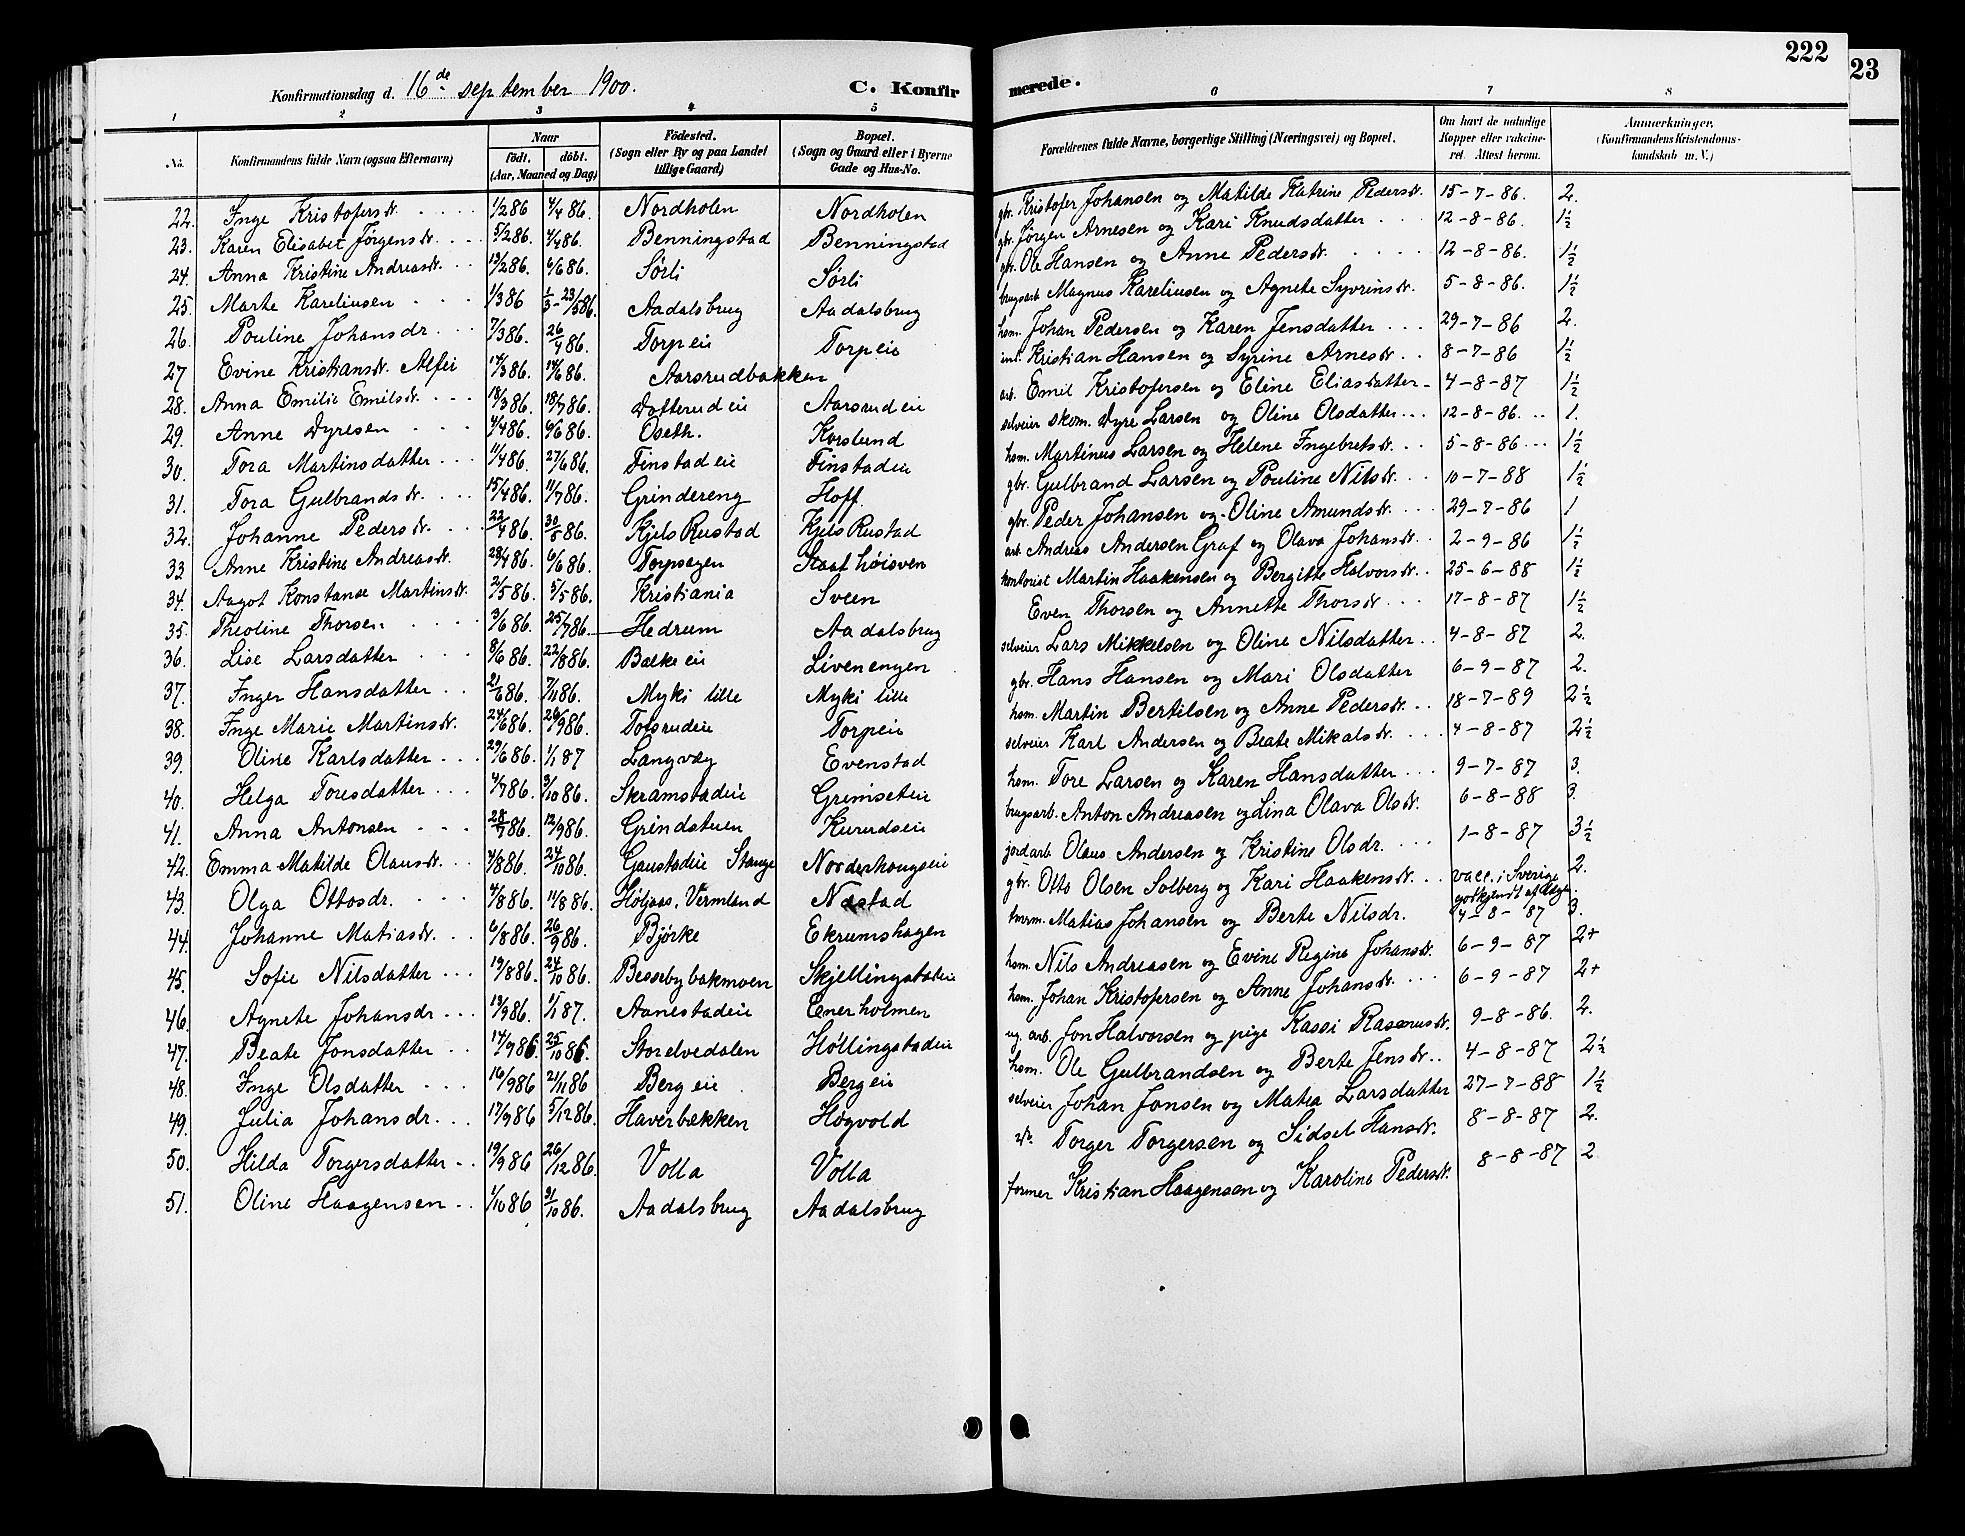 222
23
Konfirmationsdag d. 16de september 1900.
C. Konfirmerede.
1 2 3 4 5 6 7 8
No. Konfirmandens fulde Navn (ogsaa Efternavn) Naar født. døbt. (Aar, Maaned og Dag) Fødested. (Sogn eller By og paa Landet tillige Gaard) Bopæl. (Sogn og Gaard eller i Byerne Gade og Hus-No. Forældrenes fulde Navne, borgerlige Stilling (Næringsvei) og Bopæl. Om havt de naturlige Kopper eller vaccineret. Attest herom. Anmerkninger. (Konfirmandens Kristendomskundskab m. V.)
22. Inge Kristofersdr. 1/2 86 4/4 86. Nordholen Nordholen gbr. Kristofer Johansen og Matilde Katrine Pedersdr. 15-7-86. 2.
23. Karen Elisabet Jörgensdr. 5/2 86. 4/4 86. Benningstad Benningstad gbr. Jörgen Arnesen og Kari Knudsdatter 12-8-86. 1½
24. Anna Kristine Andreasdr. 13/2 86. 6/6 86. Sørli Sørli gbr. Ole Hansen og Anne Pedersdr. 12-8-86. 1½
25. Marte Kareliusen 1/3 86 1/3-23/5 86. Aadalsbrug Aadalsbrug brugsarb. Magnus Kareliusen og Agnete Syvrinsdr. 5-8-86. 1½
26. Pouline Johansdr. 7/3 86. 26/4 86. Torpeie Torpeie hsm. Johan Pedersen og Karen Jensdatter 29-7-86 2.
27 Evine Kristiansdr. Alfei 14/3 86. 14/6 86. Aarsrudbakken ind. Kristian Hansen og Syrine Arnesdr. 8-7-86 1½
28. Anna Emilie Emilsdr. 18/3 86. 18/7 86. Dofterudeie Aarsrudeie arb. Emil Kristofersen og Eline Eliasdatter 4-8-87 1½
29. Anne Dyresen 4/4 86. 6/6 86. Oseth. Korslund selveier skom. Dyre Larsen og Oline Olsdatter 12-8-86. 1.
30. Tora Martinsdatter 11/4 86. 27/6 86. Finstadeie Finstadeie hsm. Martinus Larsen og Helene Ingebretsdr. 5-8-86 1½
31. Tora Gulbrandsdr. 15/4 86. 11/7 86. Grindereng Hoff. gbr. Gulbrand Larsen og Pouline Nilsdr. 10-7-88 1½
32. Johanne Pedersdr. 22/4 86. 30/5 86. Kjels Rustad Kjels Rustad gbr. Peder Johansen og Oline Amundsdr. 29-7-86 1
33 Anne Kristine Andreasdr. 28/4 86. 6/6 86. Torpsagen arb. Andreas Andersen Graf og Olava Johansdr. 2-9-86 1½
34. Aagot Konstanse Martinsdr. 2/5 86. 5/5 86. Kristiania Sveen kontorist Martin Haakensen og Bergitte Halvorsdr. 25-6-88 1½
35. Theoline Thorsen 3/6 86. 25/7 86. Hedrum Aadalsbrug Even Thorsen og Annette Thorsdr. 17-8-87 1½
36. Lise Larsdatter 8/6 86. 22/8 86. Balkeeie Livenengen selveier Lars Mikkelsen og Oline Nilsdatter 4-8-87 2.
37. Inger Hansdatter 21/6 86. 7/11 86. Myki lille Myki lille gbr. Hans Hansen og Mari Olsdatter 6-9-87 2.
38. Inge Marie Martinsdr. 24/6 86. 26/9 86. Tofsrudeie Torpeie hsm. Martin Bertilsen og Anne Pedersdr. 18-7-89 2½
39. Oline Karlsdatter 29/6 86. 1/1 87 Langvæg Evenstad selveier Karl Andersen og Beate Mikalsdr. 4-8-87 2½
40. Helga Toresdatter 4/7 86. 3/10 86. Skramstadeie Grimseteie hsm. Tore Larsen og Karen Hansdatter 9-7-87 3.
41. Anna Antonsen 28/7 86. 12/9 86. Grindstuen Kurudseie brugsarb. Anton Andreasen og Lina Olava Olsdr. 6-8-88 3.
42. Emma Matilde Olausdr. 4/8 86. 24/10 86. Gaustadeie Stange Norderhougseie jordarb. Olaus Andersen og Kristine Olsdr. 1-8-87 3½
43. Olga Ottosdr. 4/8 86. 11/8 86. Höljaas, Vermland Næstad gbr. Otto Olsen Solberg og Kari Haakensdr. vacc. i Sverige 2.
44. Johanne Matiasdr. 6/8 86. 26/9 86. Bjørke Ekrumshagen tmrm. Matias Johansen og Berte Nilsdr. 4-8-87 3.
45. Sofie Nilsdatter 19/8 86. 24/10 86. Besserbybakmoen Skjellingstadeie hsm. Nils Andreasen og Evine Regine Johansdr. 6-9-87 2+
46. Agnete Johansdr 19/9 86. 1/1 87. Aanestadeie Enerholmen hsm. Johan Kristofersen og Anne Johansdr. 6-9-87 2+
47. Beate Jonsdatter 14/9 86. 25/10 86. Storelvedalen Høllingstadeie ug. arb. Jon Halvorsen og pige Kassi Rasmusdr. 9-8-86. 2.
48. Inge Olsdatter 16/9 86 21/11 86 Bergeie Bergeie hsm. Ole Gulbrandsen og Berte Jensdr. 4-8-87 2½
49. Julia Johansdr. 17/9 86 5/12 86. Haverbækken Høgvold selveier Johan Jonsen og Matea Larsdatter 27-7-88 1½
50. Hilda Torgersdatter 19/9 86 26/12 86. Volla Volla Torger Torgersen og Sidsel Hansdr. 8-8-87 2.
51. Oline Haagensen 1/10 86 31/10 86. Aadalsbrug Aadalsbrug former Kristian Haagensen og Karoline Pedersdr. 8-8-87 2